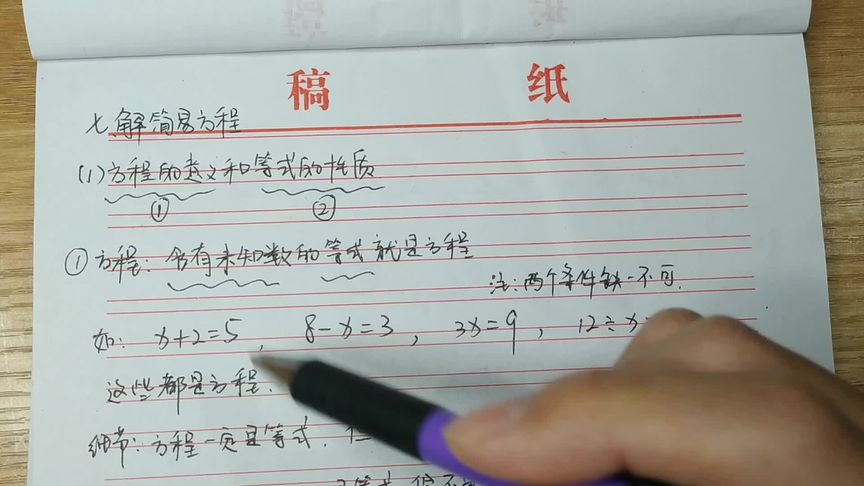 稿 纸
七.解简易方程
(1)方程的意义和等式的性质
① ②
①方程:含有未知数的等式就是方程
注:两个条件缺一不可.
如: x+2=5, 8-x=3, 3x=9, 12÷x
这些都是方程.
细节:方程一定是等式.
等式